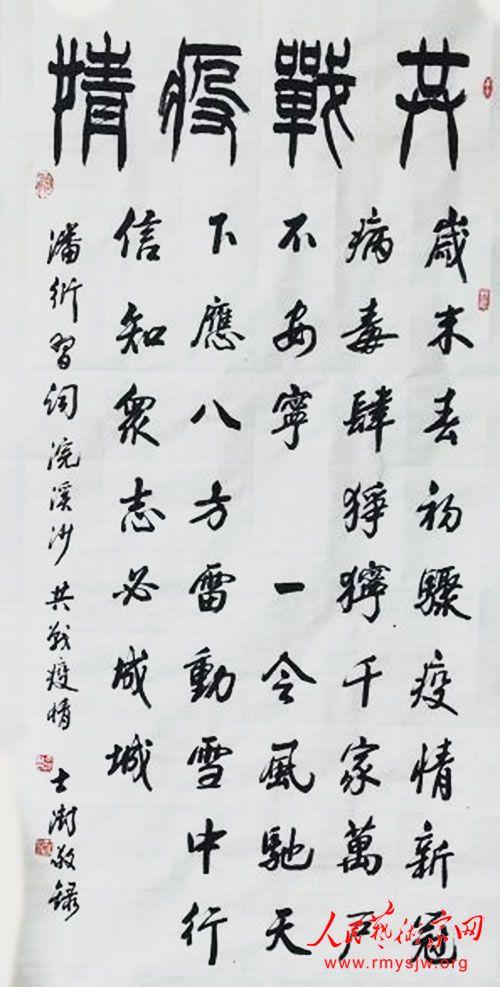 共戰疫情
歲末春初驟疫情新冠
病毒肆猙獰千家萬戶
不安寧 一令風馳天
下應八方雷動雪中行
信知眾志必成城
潘衍習詞浣溪沙 共战疫情 士澍敬錄
人民藝術家网
www.rmysjw.org